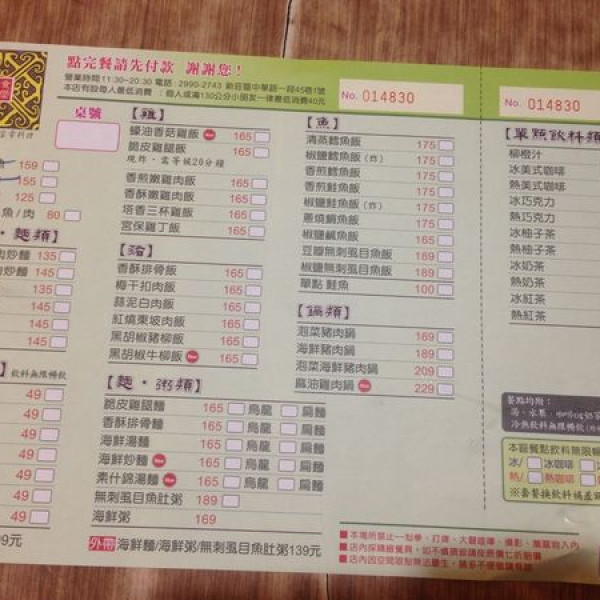 點完餐請先付款 謝謝您！
營業時間11:30~20:30 電話：2990-2743 新莊區中華路一段45巷1號
本店有設每人最低消費 ：每人或滿130公分小朋友一律最低消費40元
No. 014830
No. 014830
食
堂
家常料理
桌號
159
155
125
魚/肉 80
・麵類】
肉炒麵 135
炒麵 145
145
145
145
】飲料無限暢飲
49
49
49
49
49
49
99元
【雞】
蠔油香菇雞飯 New 165
脆皮雞腿飯 165
現炸，需等候20分鐘
香煎嫩雞肉飯 165
香酥嫩雞肉飯 165
塔香三杯雞飯 165
宮保雞丁飯 165
【豬】
香酥排骨飯 165
梅干扣肉飯 165
蒜泥白肉飯 165
紅燒東坡肉飯 165
黑胡椒豬柳飯 165
黑胡椒牛柳飯 New 165
【麵・粥類】
脆皮雞腿麵 165 烏龍 扁麵
香酥排骨麵 165 烏龍 扁麵
海鮮湯麵 165 烏龍 扁麵
海鮮炒麵 New 165 烏龍 扁麵
素什錦湯麵 New 165 烏龍 扁麵
無刺虱目魚肚粥 189
海鮮粥 169
外帶 海鮮麵/海鮮粥/無刺虱目魚肚粥139元
【魚】
清蒸鱈魚飯 175
椒鹽鱈魚飯(炸) 175
香煎鱈魚飯 175
香煎鮭魚飯 175
椒鹽鮭魚飯(炸) 175
蔥燒鯛魚飯 175
椒鹽鯛魚飯 175
豆瓣無刺虱目魚飯 189
椒鹽無刺虱目魚飯 189
單點 鮭魚 100
【鍋類】
泡菜豬肉鍋 169
海鮮豬肉鍋 189
泡菜海鮮豬肉鍋 209
麻油雞肉鍋 New 229
【單點飲料類
柳橙汁
冰美式咖啡
熱美式咖啡
冰巧克力
熱巧克力
冰柚子茶
熱柚子茶
冰奶茶
熱奶茶
冰紅茶
熱紅茶
餐點均附：
湯、水果、
冷熱飲料無限暢飲
本區餐點飲料無限暢
冰/ 冰咖啡
熱/ 熱咖啡
※套餐換飲料補差額
■本場所禁止一划拳、打牌、大聲喧嘩、攝影、攜寵物入內
■店內
■店內因空間限制無法慶生，